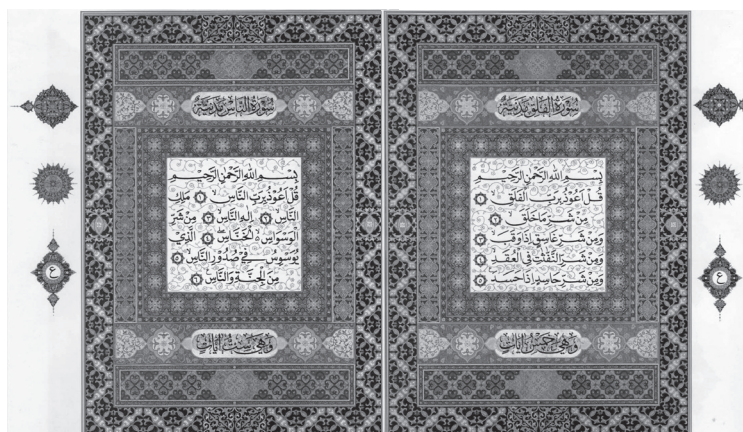 سُورَةُ الفَلَقِ مَدَنِيَّةٌ
بِسْمِ اللّٰهِ الرَّحْمٰنِ الرَّحِيمِ
قُلْ اَعُوذُ بِرَبِّ الْفَلَقِ ﴿١﴾
مِنْ شَرِّ مَا خَلَقَ ﴿٢﴾
وَمِنْ شَرِّ غَاسِقٍ اِذَا وَقَبَ ﴿٣﴾
وَمِنْ شَرِّ النَّفَّاثَاتِ فِي الْعُقَدِ ﴿٤﴾
وَمِنْ شَرِّ حَاسِدٍ اِذَا حَسَدَ ﴿٥﴾
وَهِيَ خَمْسُ اٰيَاتٍ
ع
سُورَةُ النَّاسِ مَدَنِيَّةٌ
بِسْمِ اللّٰهِ الرَّحْمٰنِ الرَّحِيمِ
قُلْ اَعُوذُ بِرَبِّ النَّاسِ ﴿١﴾ مَلِكِ
النَّاسِ ﴿٢﴾ اِلٰهِ النَّاسِ ﴿٣﴾ مِنْ شَرِّ
الْوَسْوَاسِ الْخَنَّاسِ ﴿٤﴾ اَلَّذِي
يُوَسْوِسُ فِي صُدُورِ النَّاسِ ﴿٥﴾
مِنَ الْجِنَّةِ وَالنَّاسِ ﴿٦﴾
وَهِيَ سِتُّ اٰيَاتٍ
ع